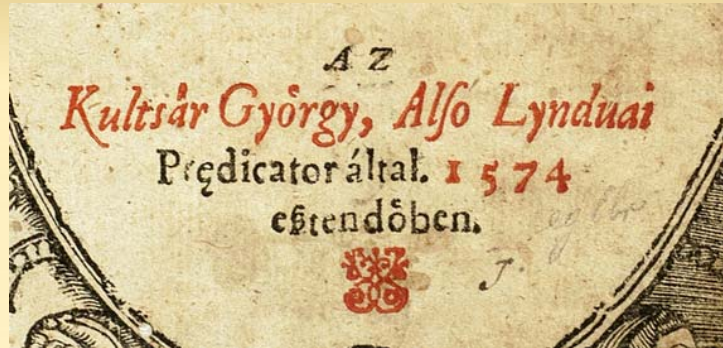 AZ
Kultsår Gyo̊rgy, Alſó Lynduai
Prędicator által. 1574
eßtendo̊ben.